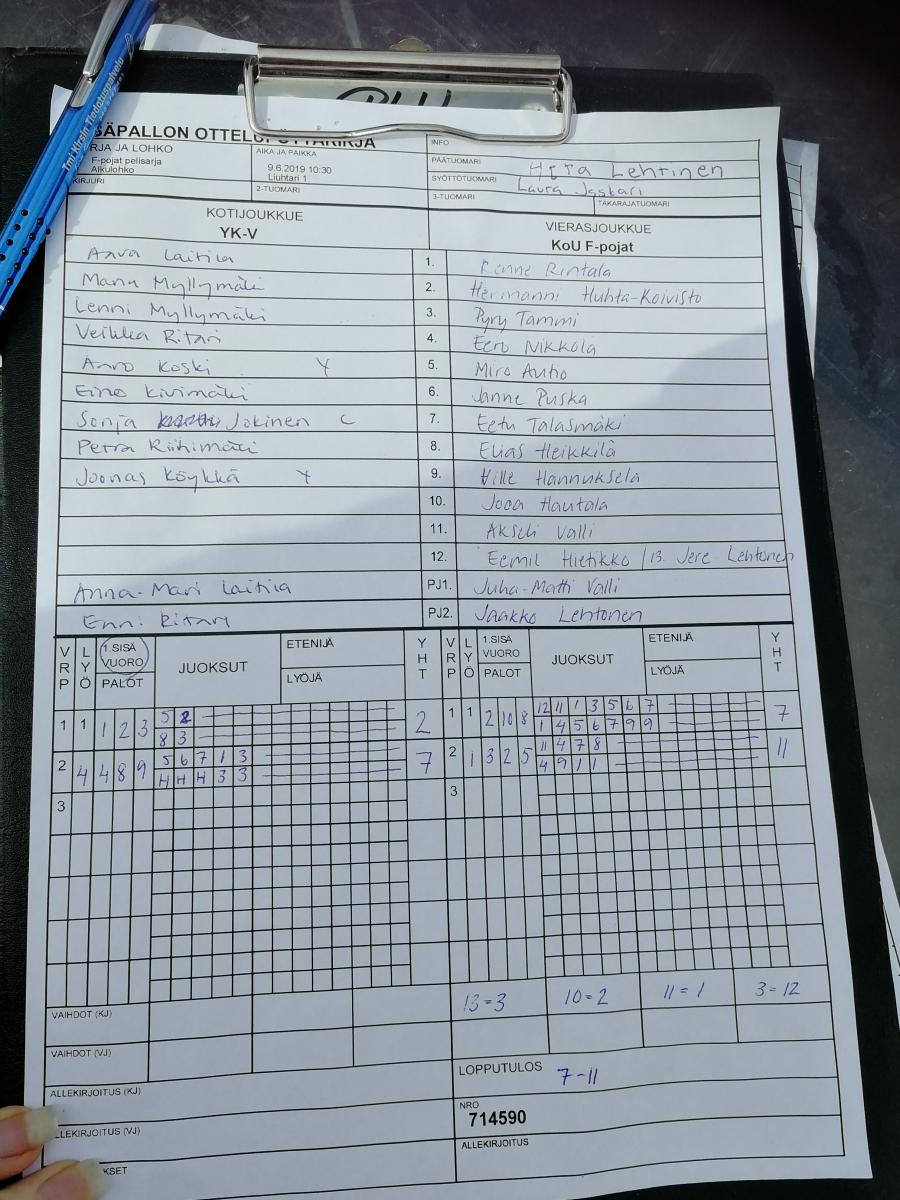 Tmi Kirsin Tiedatuspalvelu
SÄPALLON OTTELUPÖYTÄKIRJA
RJA JA LOHKO
F-pojat pelisarja
Alkulohko
KIRJURI
AIKA JA PAIKKA
9.6.2019 10:30
Liuhtari 1
2-TUOMARI
INFO
PÄÄTUOMARI Lehtinen
SYÖTTÖTUOMARI Laura Jaskari
3-TUOMARI TAKARAJATUOMARI
KOTIJOUKKUE
YK-V
VIERASJOUKKUE
KoU F-pojat
Laitila 1. Rintala
Manu Myllymäki 2. Hermanni Huhta-Koivisto
Lenni Myllymäki 3. Pyry Tammi
Veikka Ritari 4. Eero Nikkola
Aaro Koski Y 5. Miro Autio
Eino Kivimäki 6. Janne Puska
Sonja Jokinen C 7. Eetu Talasmäki
Petra Riihimäki 8. Elias Heikkilä
Joonas Köykkä Y 9. Ville Hannuksela
10. Joona Hautala
11. Akseli Valli
12. Eemil Hietikko / 13. Jere Lehtonen
Anna-Mari Laitila PJ1. Juha-Matti Valli
Enni Ritari PJ2. Jaakko Lehtonen
VRP LYÖ 1.SISÄ VUORO PALOT JUOKSUT ETENIJÄ LYÖJÄ YHT VRP LYÖ 1.SISÄ VUORO PALOT JUOKSUT ETENIJÄ LYÖJÄ YHT
1 1 1 2 3 5 2 2 1 1 2 10 8 12 11 1 3 5 6 7 7
8 3 1 4 5 6 7 9 9
2 4 4 8 9 5 6 7 1 3 7 2 1 3 2 5 11 4 7 8 11
H H H 3 3 4 9 1 1
3 3
VAIHDOT (KJ) 13=3 10=2 11=1 3=12
VAIHDOT (VJ)
ALLEKIRJOITUS (KJ) LOPPUTULOS 7-11
ALLEKIRJOITUS (VJ) NRO
714590
KSET ALLEKIRJOITUS